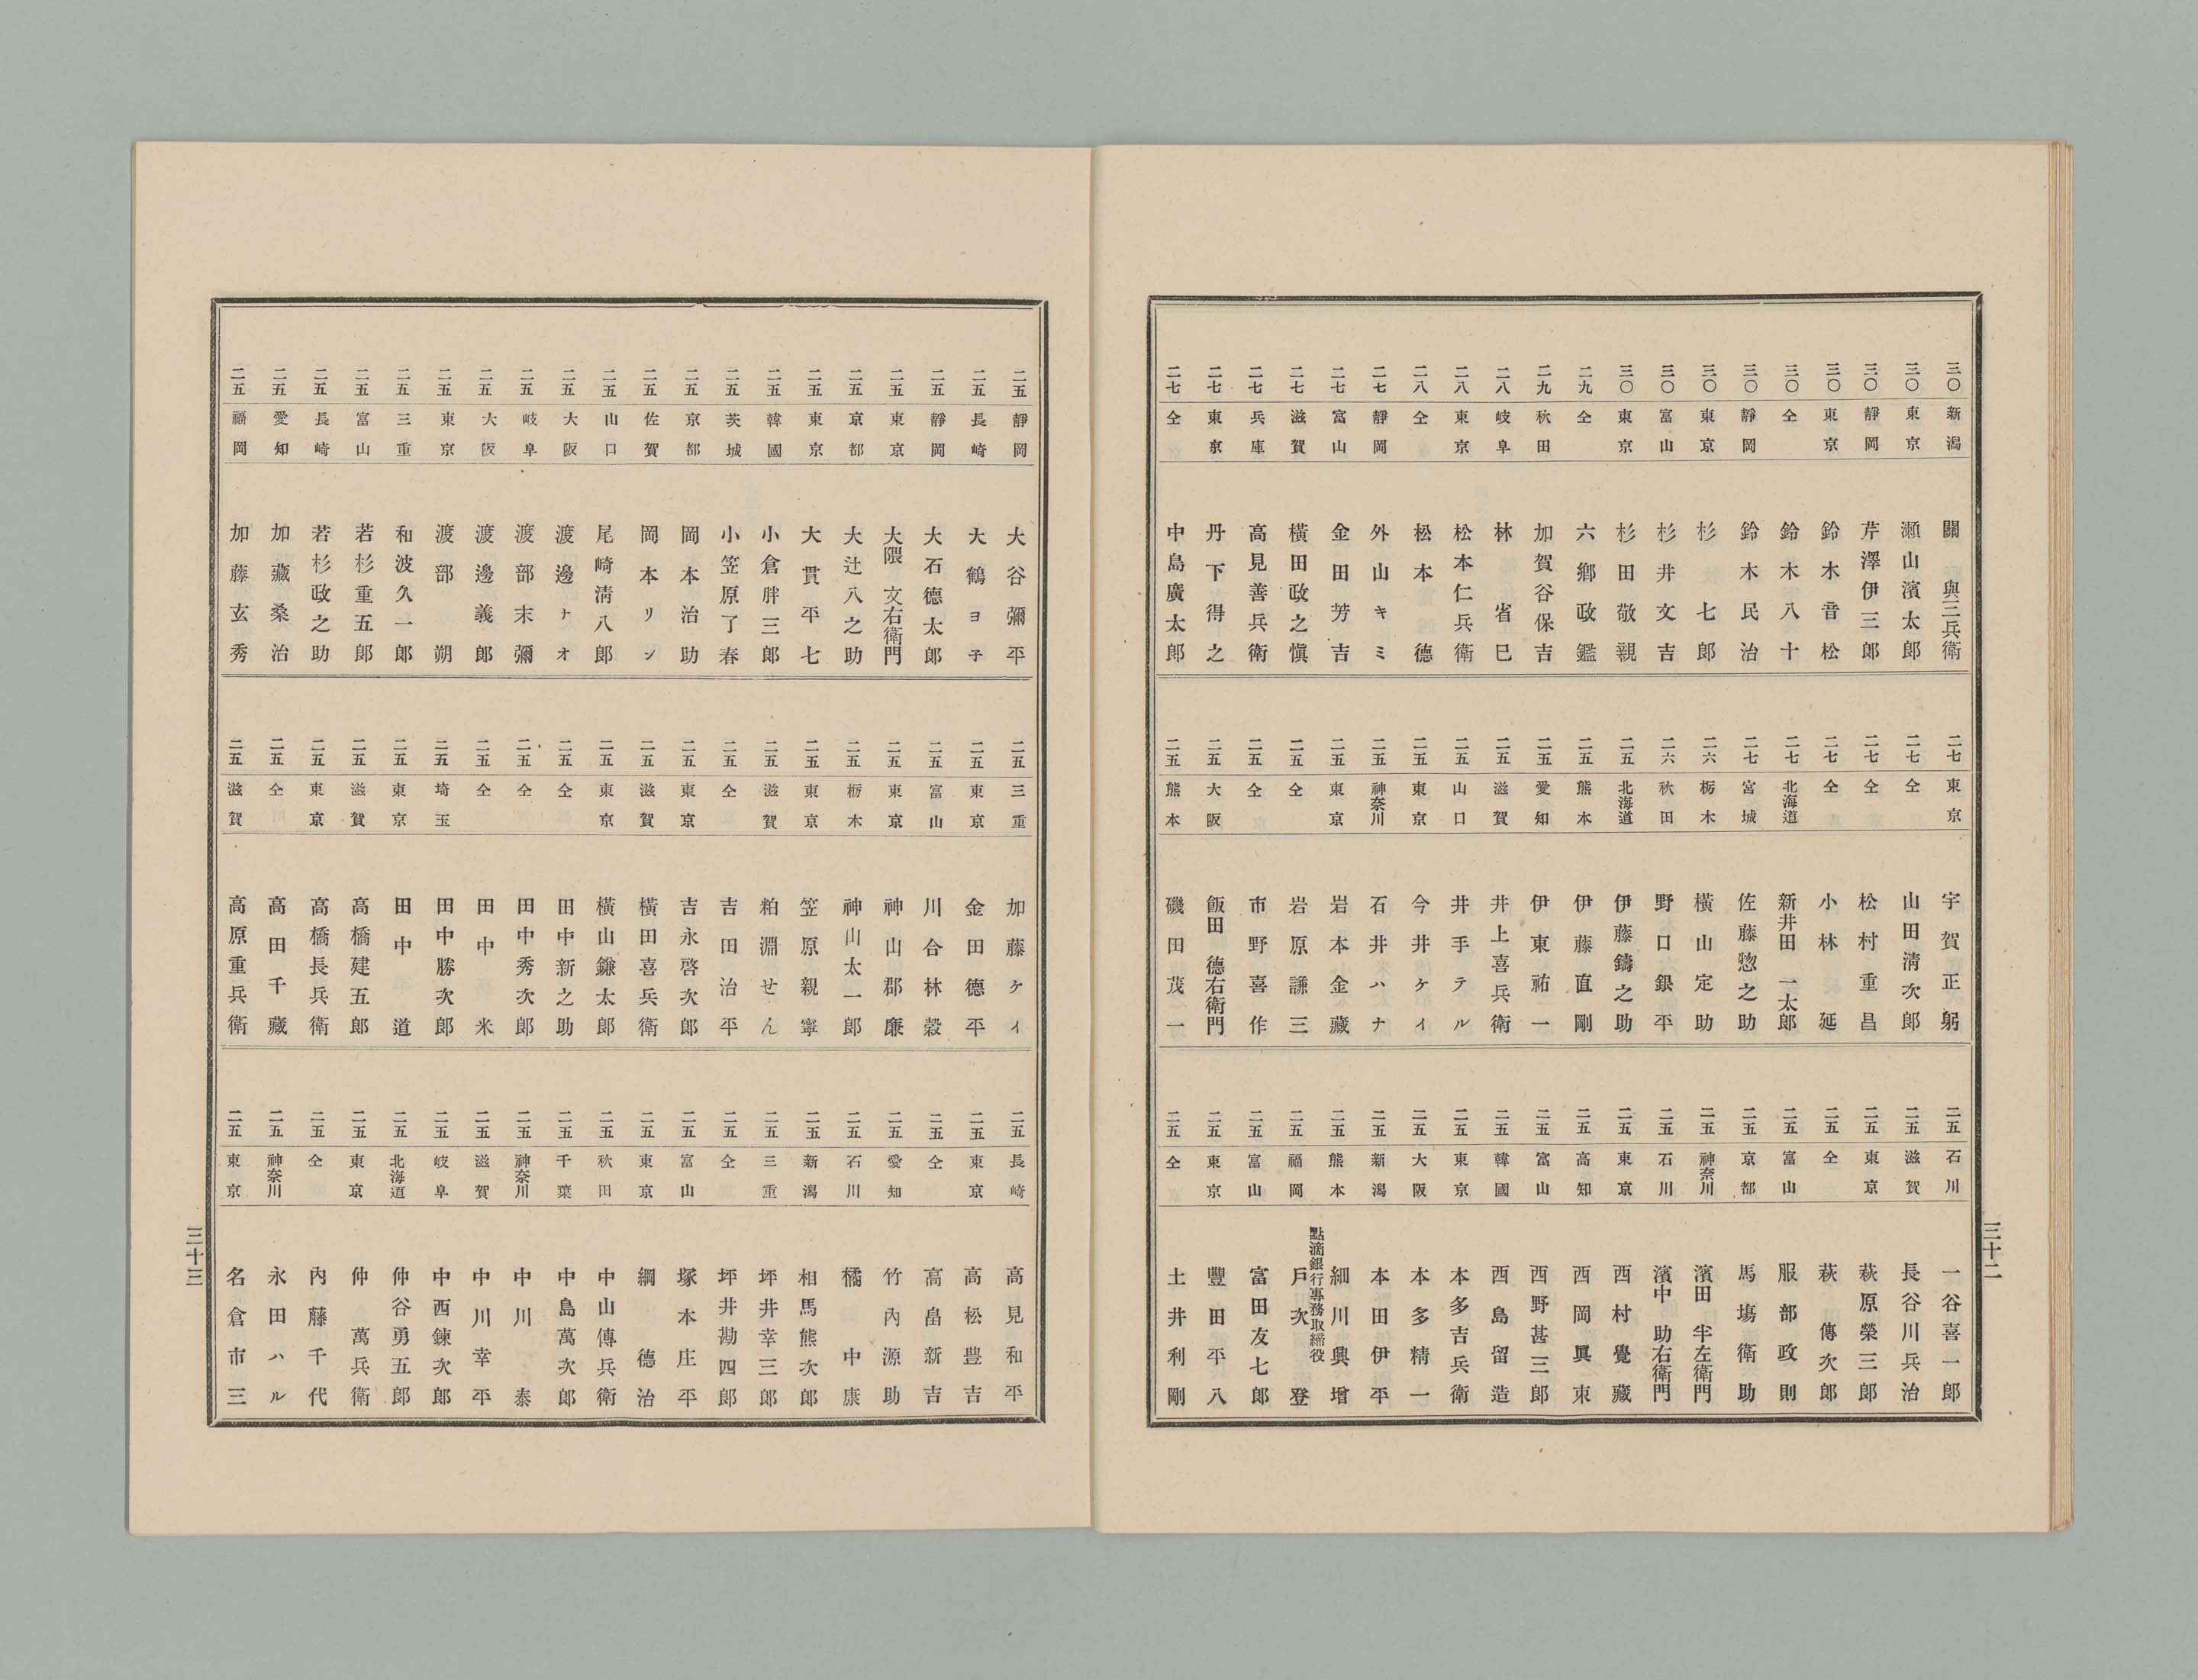 三〇 新潟 關與三兵衛
三〇 東京 瀬山濱太郎
三〇 靜岡 芹澤伊三郎
三〇 東京 鈴木音松
三〇 仝 鈴木八十
三〇 靜岡 鈴木民治
三〇 東京 杉七郎
三〇 富山 杉井文吉
三〇 東京 杉田敬親
二九 仝 六鄕政鑑
二九 秋田 加賀谷保吉
二八 岐阜 林省巳
二八 東京 松本仁兵衛
二八 仝 松本德
二七 靜岡 外山キミ
二七 富山 金田芳吉
二七 滋賀 橫田政之愼
二七 兵庫 高見善兵衛
二七 東京 丹下得之
二七 仝 中島廣太郎
二七 東京 宇賀正躬
二七 仝 山田淸次郎
二七 仝 松村重昌
二七 仝 小林延
二七 北海道 新井田一太郎
二七 宮城 佐藤惣之助
二六 栃木 橫山定助
二六 秋田 野口銀平
二五 北海道 伊藤鑄之助
二五 熊本 伊藤直剛
二五 愛知 伊東祐一
二五 滋賀 井上喜兵衛
二五 山口 井手テル
二五 東京 今井ケイ
二五 神奈川 石井ハナ
二五 東京 岩本金藏
二五 仝 岩原謙三
二五 仝 市野喜作
二五 大阪 飯田德右衛門
二五 熊本 磯田茂一
二五 石川 一谷喜一郎
二五 滋賀 長谷川兵治
二五 東京 萩原榮三郎
二五 仝 萩傳次郎
二五 富山 服部政則
二五 京都 馬塲衛助
二五 神奈川 濱田半左衛門
二五 石川 濱中助右衛門
二五 東京 西村覺藏
二五 高知 西岡眞束
二五 富山 西野甚三郎
二五 韓國 西島留造
二五 東京 本多吉兵衛
二五 大阪 本多精一
二五 新潟 本田伊平
二五 熊本 細川興增
二五 福岡 點滴銀行專務取締役 戶次登
二五 富山 富田友七郎
二五 東京 豐田平八
二五 仝 土井利剛
三十二
二五 靜岡 大谷彌平
二五 長崎 大鶴ヨネ
二五 靜岡 大石德太郎
二五 東京 大隈文右衛門
二五 京都 大辻八之助
二五 東京 大貫平七
二五 韓國 小倉胖三郎
二五 茨城 小笠原了春
二五 京都 岡本治助
二五 佐賀 岡本リン
二五 山口 尾崎淸八郎
二五 大阪 渡邊ナオ
二五 岐阜 渡部末彌
二五 大阪 渡邊義郎
二五 東京 渡部朔
二五 三重 和波久一郎
二五 富山 若杉重五郎
二五 長崎 若杉政之助
二五 愛知 加藏桑治
二五 福岡 加藤玄秀
二五 三重 加藤ケイ
二五 東京 金田德平
二五 富山 川合林穀
二五 東京 神山郡廉
二五 栃木 神山太一郎
二五 東京 笠原親寧
二五 滋賀 粕淵せん
二五 仝 吉田治平
二五 東京 吉永啓次郎
二五 滋賀 橫田喜兵衛
二五 東京 橫山鎌太郎
二五 仝 田中新之助
二五 仝 田中秀次郎
二五 仝 田中米
二五 埼玉 田中勝次郎
二五 東京 田中道
二五 滋賀 高橋建五郎
二五 東京 高橋長兵衛
二五 仝 高田千藏
二五 滋賀 高原重兵衛
二五 長崎 高見和平
二五 東京 高松豊吉
二五 仝 高畠新吉
二五 愛知 竹內源助
二五 石川 橘中康
二五 新潟 相馬熊次郎
二五 三重 坪井幸三郎
二五 仝 坪井勘四郎
二五 富山 塚本庄平
二五 東京 綱德治
二五 秋田 中山傳兵衛
二五 千葉 中島萬次郎
二五 神奈川 中川泰
二五 滋賀 中川幸平
二五 岐阜 中西鍊次郎
二五 北海道 仲谷勇五郎
二五 東京 仲萬兵衛
二五 仝 內藤千代
二五 神奈川 永田ハル
二五 東京 名倉市三
三十三